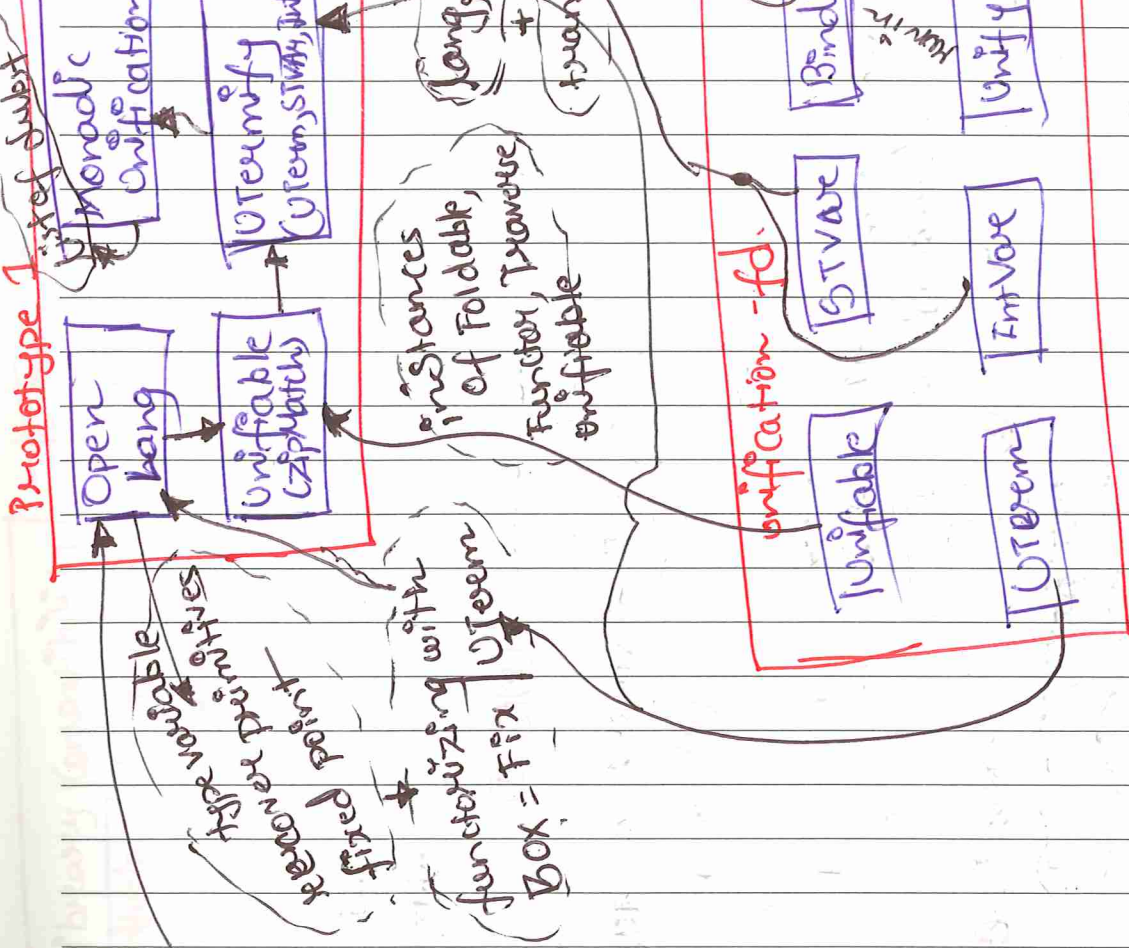 Prototype 1
Open
Lang
Unifiable
(zipMatch)
Monadic
Unification
UTermify
(UTerm, STVar, Int
list of subst
type variable
recover primitives
fixed point
+
functorizing with
Box = Fix UTerm
instances
of Foldable,
Functor, Traverse,
Unifiable
Lang
+
tran
unification-fd.
Unifiable
STVar
Bind
UTerm
IntVar
Unify
run in